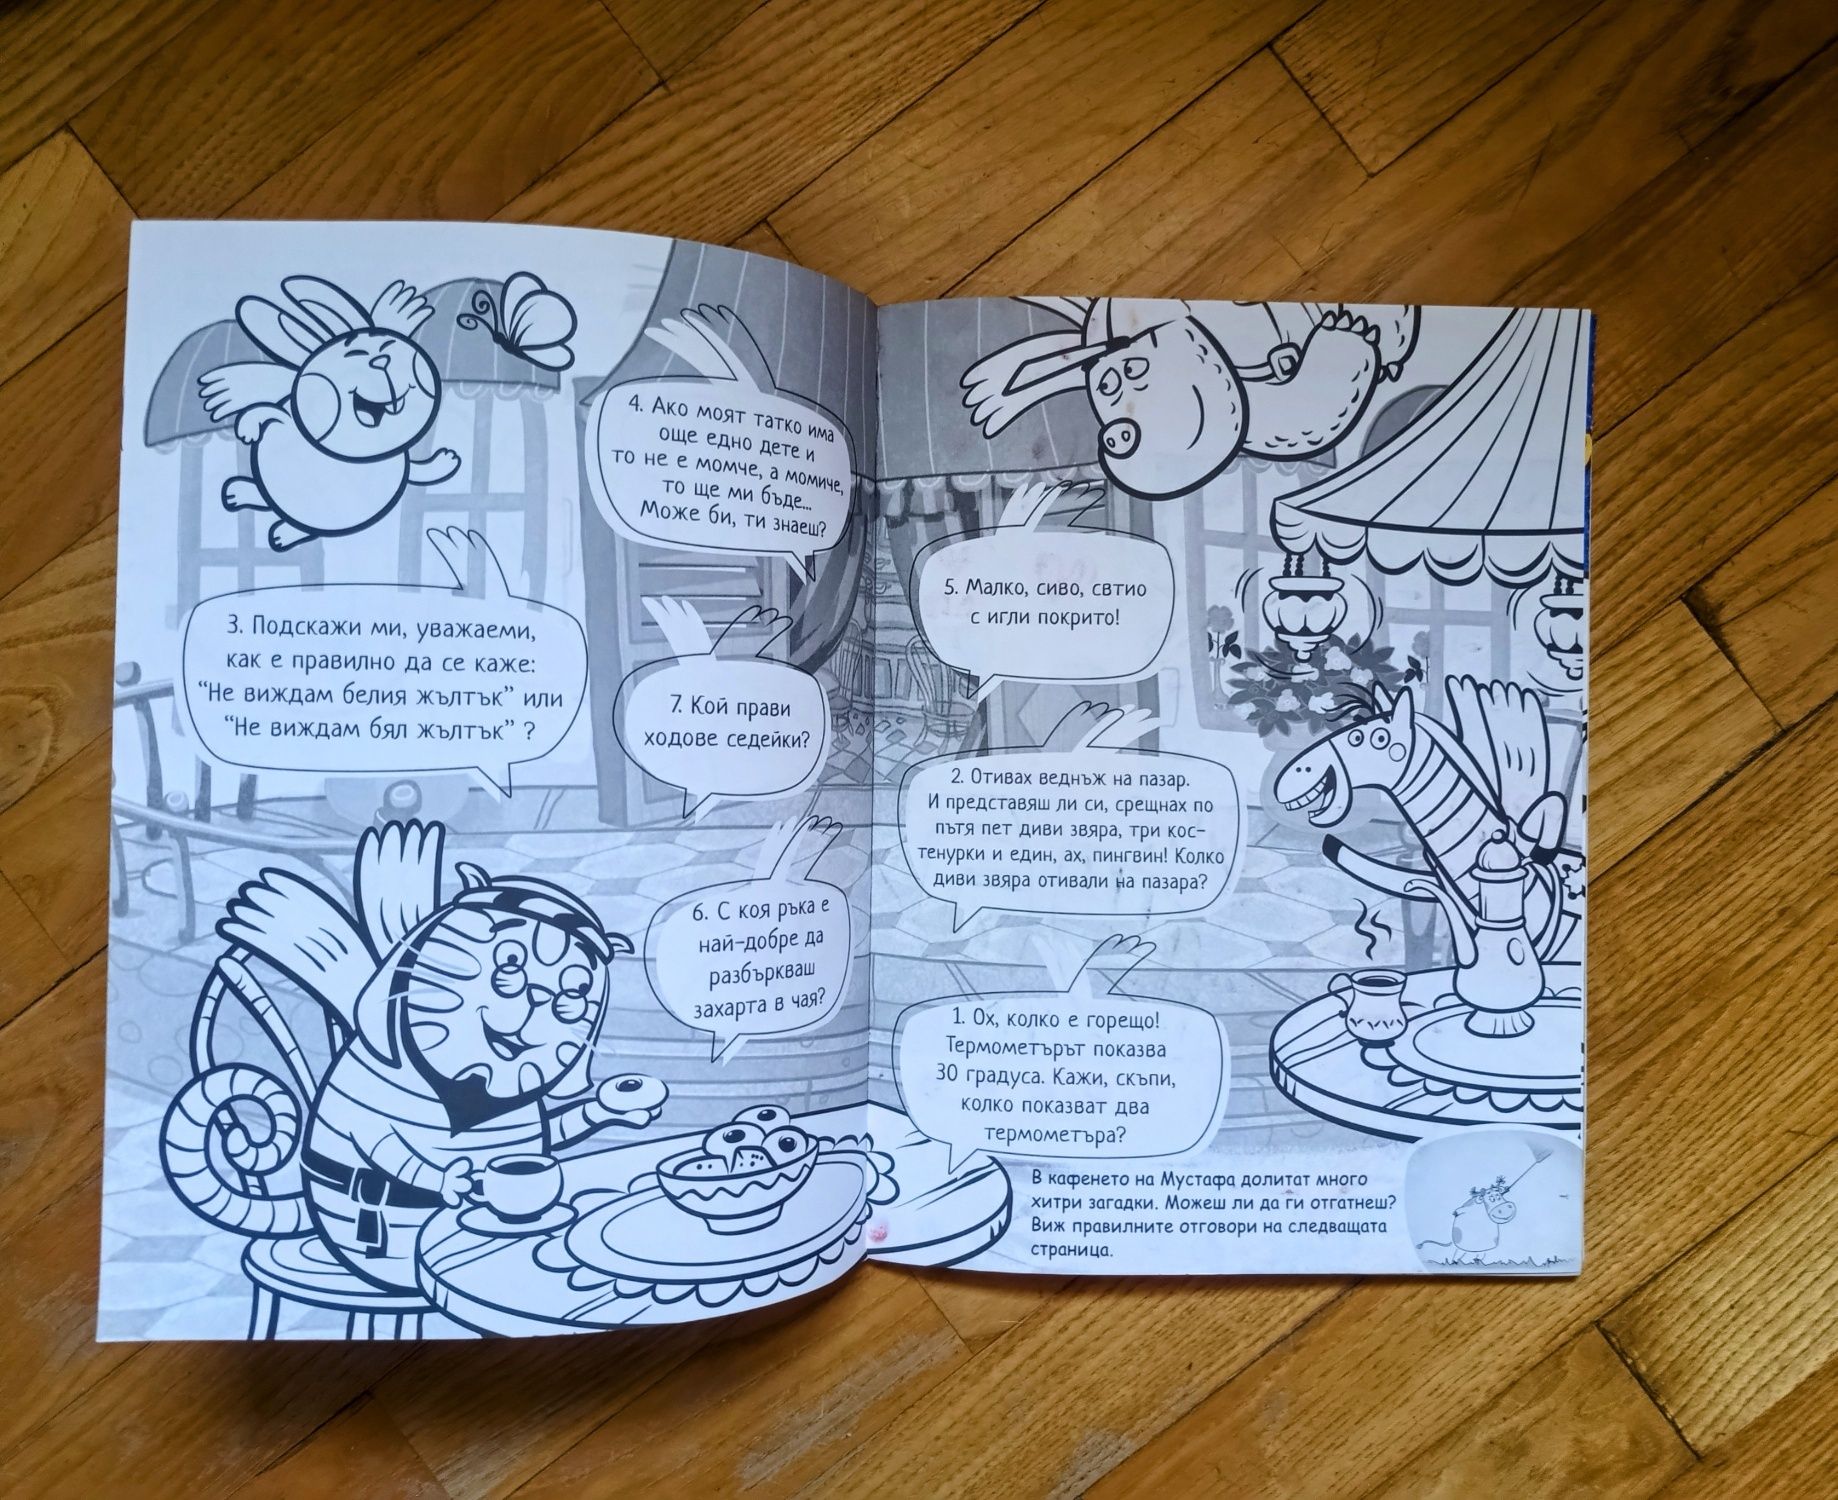 4. Ако моят татко има
още едно дете и
то не е момче, а момиче,
то ще ми бъде...
Може би, ти знаеш?
3. Подскажи ми, уважаеми,
как е правилно да се каже:
“Не виждам белия жълтък” или
“Не виждам бял жълтък” ?
7. Кой прави
ходове седейки?
6. С коя ръка е
най-добре да
разбъркваш
захарта в чая?
5. Малко, сиво, свтио
с игли покрито!
2. Отивах веднъж на пазар.
И представяш ли си, срещнах по
пътя пет диви звяра, три кос-
тенурки и един, ах, пингвин! Колко
диви звяра отивали на пазара?
1. Ох, колко е горещо!
Термометърът показва
30 градуса. Кажи, скъпи,
колко показват два
термометъра?
В кафенето на Мустафа долитат много
хитри загадки. Можеш ли да ги отгатнеш?
Виж правилните отговори на следващата
страница.